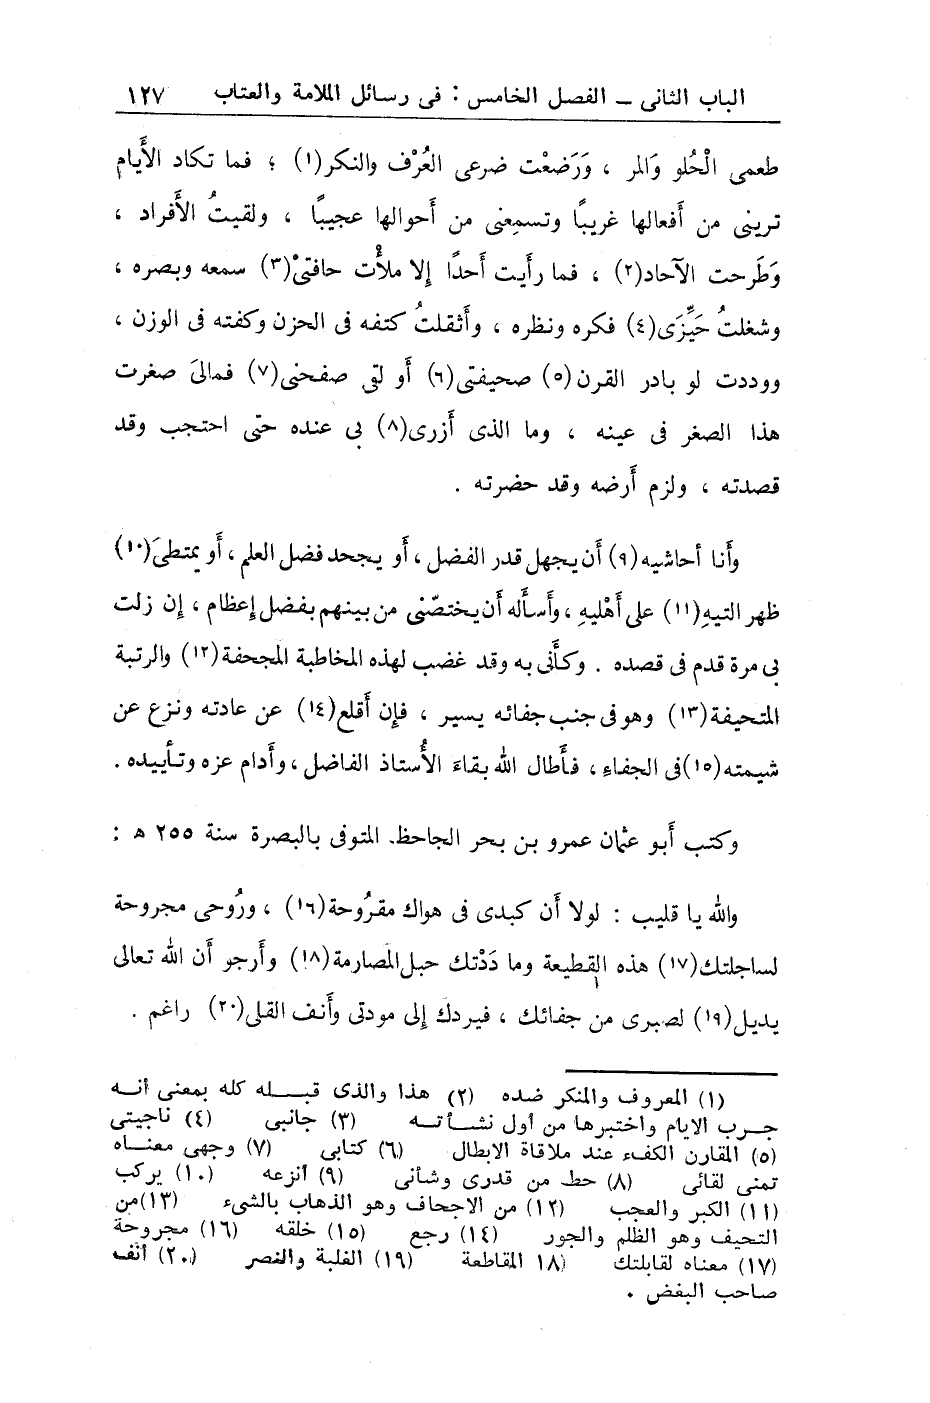 الباب الثانى ــ الفصل الخامس : فى رسائل الملامة والعتاب ١٢٧
طعمى الْحُلو وَالمر ، وَرَضعْت ضرعى العُرْف والنكر(١) ؛ فما تكاد الأَيام
ترينى من أَفعالها غريبًا وتسمعنى من أَحوالها عجيبًا ، ولقيتُ الأَفراد ،
وَطَرحت الآحاد(٢) ، فما رأَيت أَحدًا إلا ملأْت حافتىْ(٣) سمعه وبصره ،
وشغلتُ حَيِّزَى(٤) فكره ونظره ، وأَثقلتُ كتفه فى الحزن وكفته فى الوزن ،
ووددت لو بادر القرن(٥) صحيفتى(٦) أَو لقى صفحنى(٧) فمالىَ صغرت
هذا الصغر فى عينه ، وما الذى أَزرى(٨) بى عنده حتى احتجب وقد
قصدته ، ولزم أَرضه وقد حضرته .
وأَنا أحاشيه(٩) أَن يجهل قدر الفضل ، أَو يجحد فضل العلم ، أَو يمتطىَ(١٠)
ظهر التيهِ(١١) على أَهْليهِ ، وأَسأَله أَن يختصّنى من بينهم بفضل إعظام ، إن زلت
بى مرة قدم فى قصده . وكأَنى به وقد غضب لهذه المخاطبة المجحفة(١٢) والرتبة
المتحيفة(١٣) وهو فى جنب جفائه يسير ، فإن أَقلع(١٤) عن عادته ونزع عن
شيمته(١٥) فى الجفاءِ ، فأَطال الله بقاءَ الأُستاذ الفاضل ، وأَدام عزه وتأْييده .
وكتب أَبو عثمان عمرو بن بحر الجاحظ. المتوفى بالبصرة سنة ٢٥٥ ه :
والله يا قليب : لولا أَن كبدى فى هواك مقرُوحة(١٦) ، ورُوحى مجروحة
لساجلتك(١٧) هذه القطيعة وما دَدْتك حبل المصارمة(١٨) وأَرجو أَن الله تعالى
يديل(١٩) لصبرى من جفائك ، فيردك إلى مودتى وأَنف القلى(٢٠) راغم .
(١) المعروف والمنكر ضده (٢) هذا والذى قبـــله كله بمعنى أنــه
جــرب الايام واختبرها من أول نشــأتــه (٣) جانبى (٤) ناجيتى
(٥) المقارن الكفء عند ملاقاة الابطال (٦) كتابى (٧) وجهى معنــاه
تمنى لقائى (٨) حط من قدرى وشأنى (٩) أنزعه (١٠) يركب
(١١) الكبر والعجب (١٢) من الاجحاف وهو الذهاب بالشىء (١٣)من
التحيف وهو الظلم والجور (١٤) رجع (١٥) خلقه (١٦) مجروحة
(١٧) معناه لقابلتك (١٨ المقاطعة (١٩) الغلبة والنصر (٢٠) أنف
صاحب البغض .